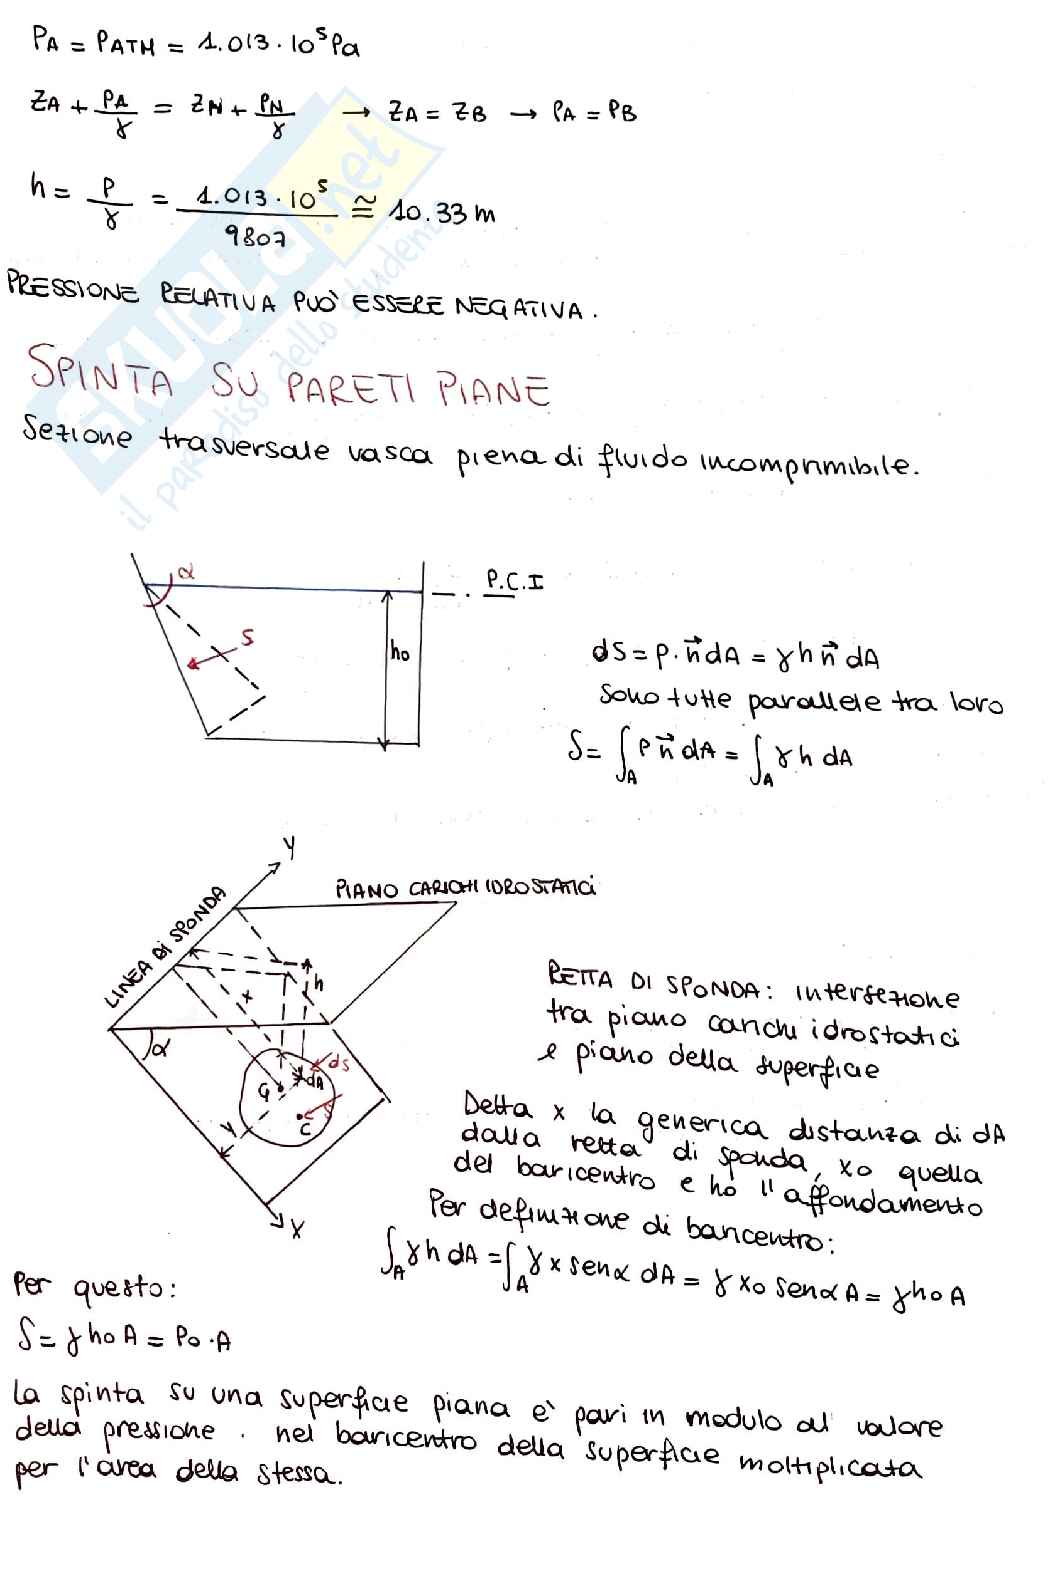 PA = PATM = 1.013 · 10⁵ Pa
ZA + PA/γ = ZN + PN/γ → ZA = ZB → PA = PB
h = P/γ = 1.013 · 10⁵/9807 ≅ 10.33 m
PRESSIONE RELATIVA PUÒ ESSERE NEGATIVA.
SPINTA SU PARETI PIANE
Sezione trasversale vasca piena di fluido incomprimibile.
α
P.C.I
S
h₀
dS = p · n⃗ dA = γ h n⃗ dA
Sono tutte parallele tra loro
S = ∫A p n⃗ dA = ∫A γ h dA
y
PIANO CARICHI IDROSTATICI
LINEA DI SPONDA
h
x
α
dS
G
dA
S
C
Y
X
RETTA DI SPONDA: intersezione
tra piano carichi idrostatici
e piano della superficie
Detta x la generica distanza di dA
dalla retta di sponda, x₀ quella
del baricentro e h₀ l'affondamento
Per definizione di baricentro:
∫A γ h dA = ∫A γ x senα dA = γ x₀ senα A = γ h₀ A
Per questo:
S = γ h₀ A = P₀ · A
La spinta su una superficie piana è pari in modulo al valore
della pressione . nel baricentro della superficie moltiplicata
per l'area della stessa.
SKUOLA.net
il paradiso dello studente